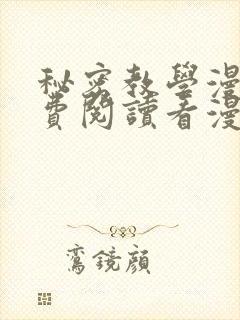 秘密教學漫
費閱讀看漫
鸞鏡顔